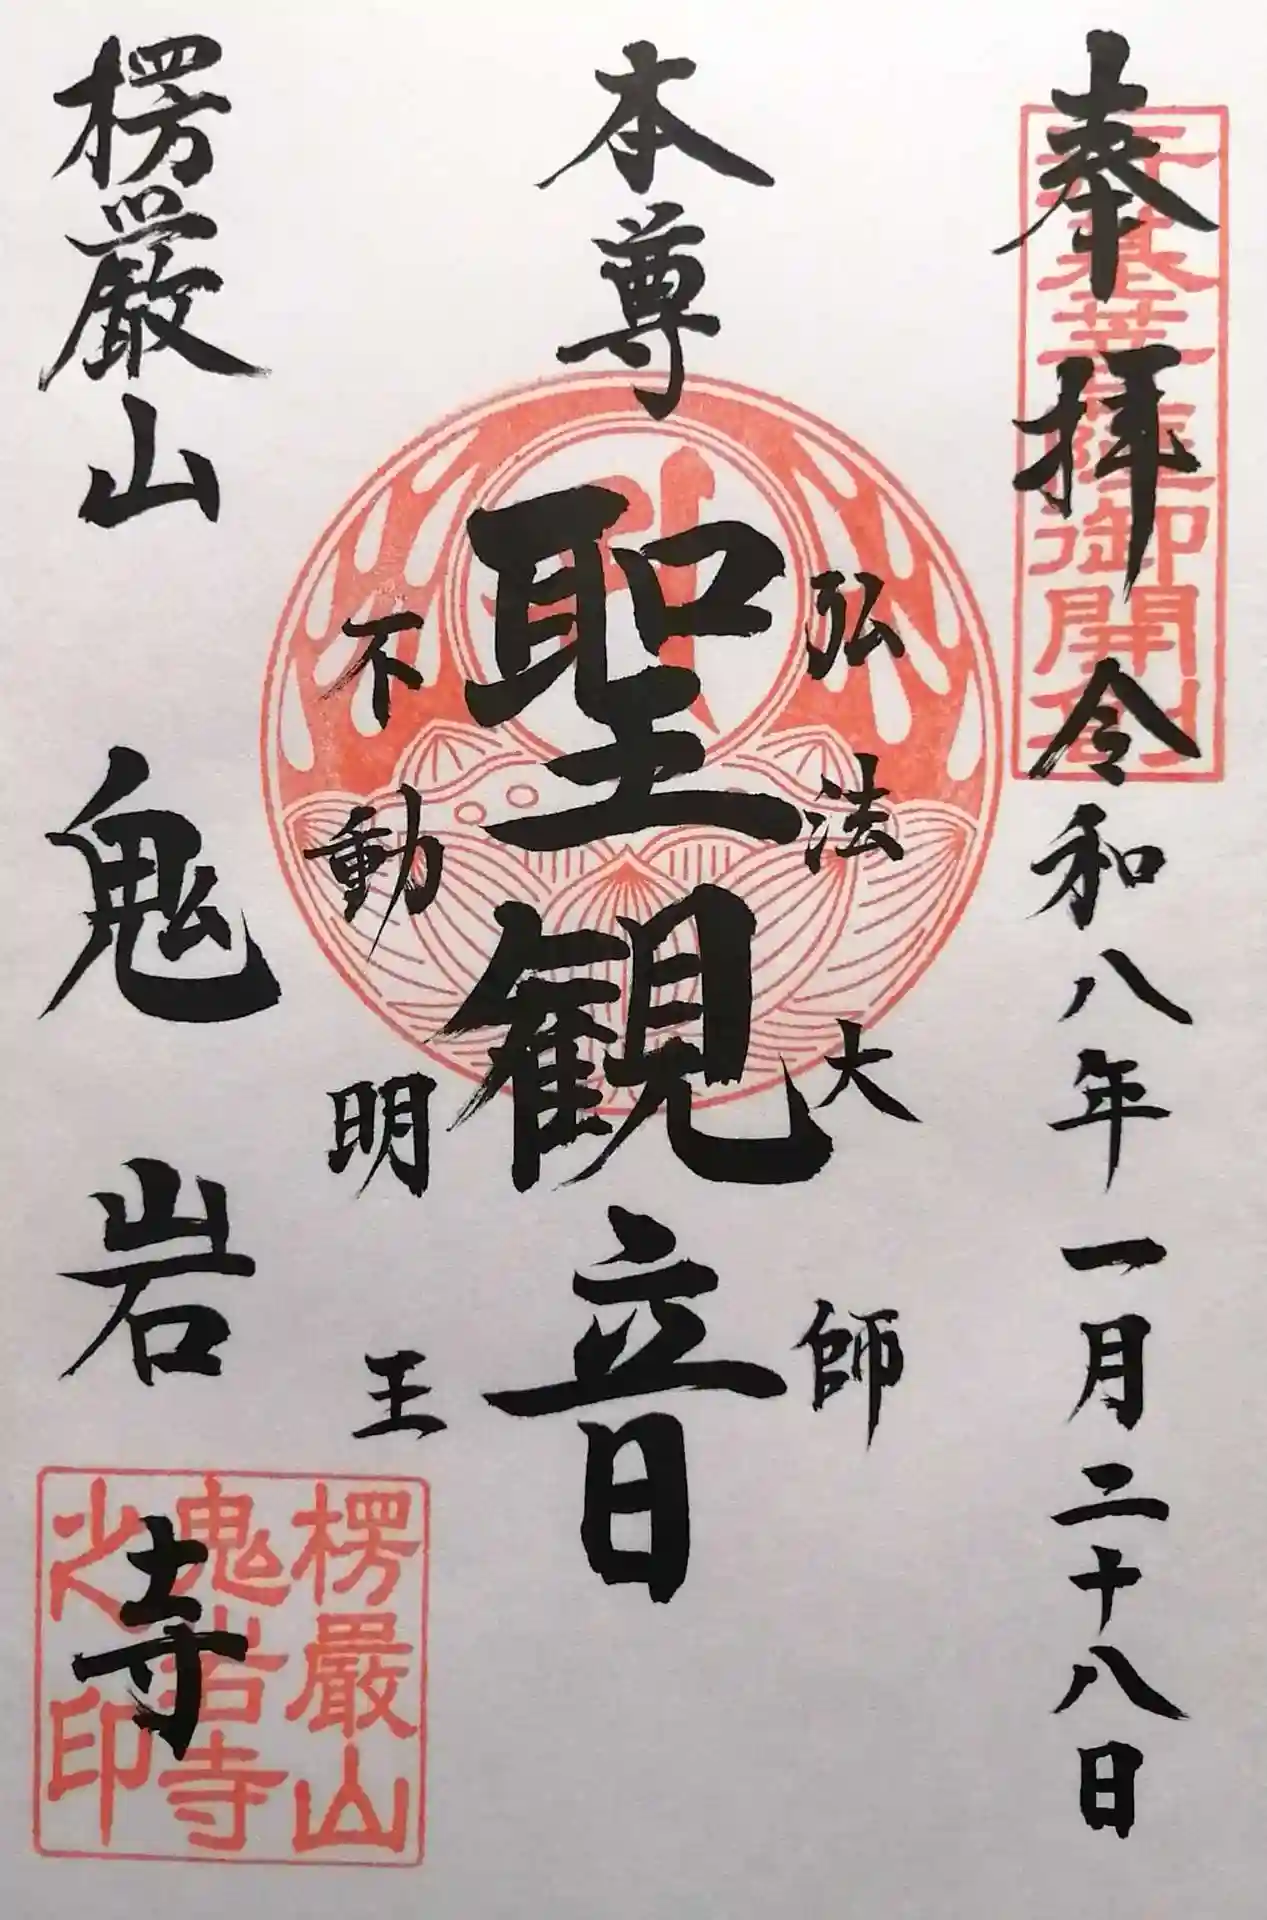 奉拝 令和八年一月二十八日
行基菩薩御開創
弘法大師
本尊 聖観音
不動明王
楞厳山 鬼岩寺
楞嚴山
鬼岩寺
之印